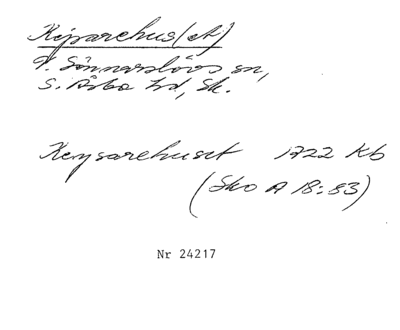 Kejsarehus(et)
V. Sönnarslövs sn,
S. Åsbo hd, Sk.
Keysarehuset 1722 Kb
(Sko A 18:53)
Nr 24217